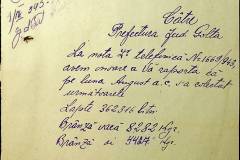 1/IX 943.
Către
Prefectura Jud Golta
La nota Dv telefonică No 1669/943,
avem onoare a Vă raporta că
pe luna August a.c. s'a colectat
următoarele
Lapte 362316 litri
Brânză vacă 8282 Kgr.
Brânză oi 4407 Kgr.